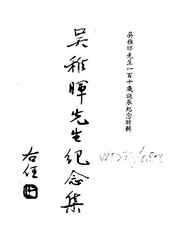 吳稚暉先生一百十歲誕辰紀念特輯
吳稚暉先生紀念集
右任